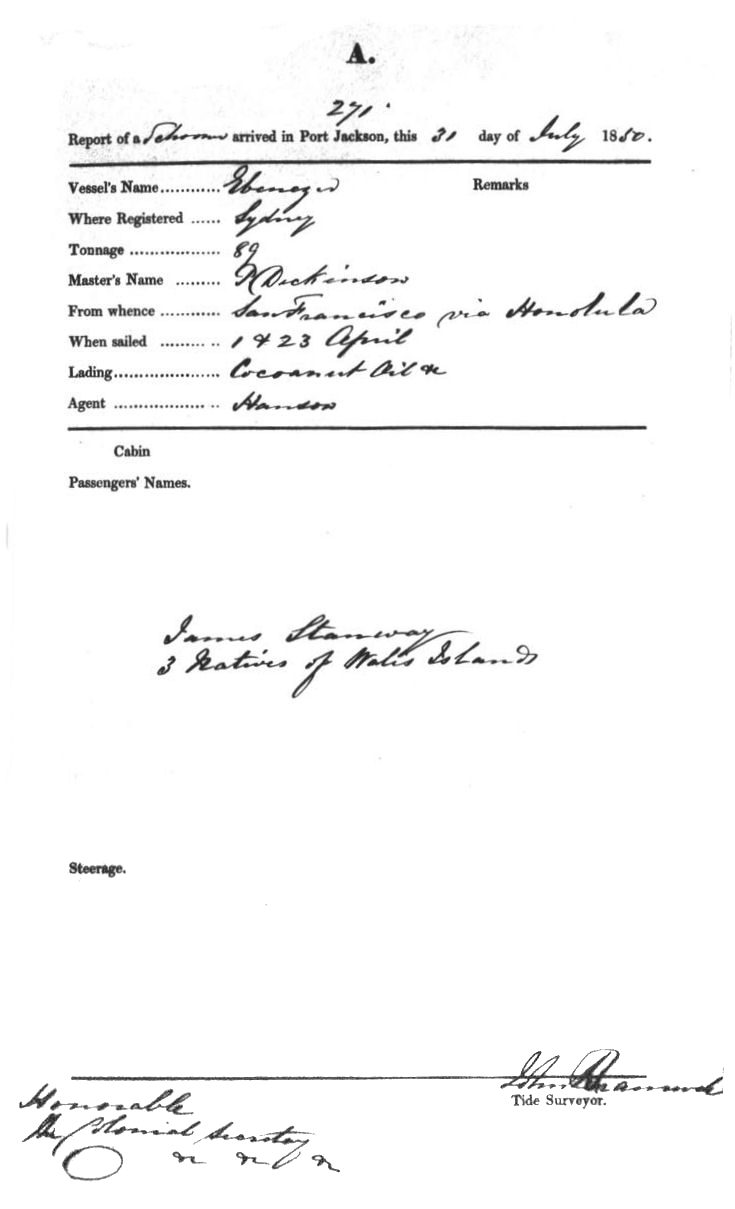 A.
271.
Report of a Schooner arrived in Port Jackson, this 31 day of July 1850.
Vessel's Name............ Ebenezer Remarks
Where Registered ...... Sydney
Tonnage .................. 89
Master's Name ......... Dickinson
From whence ............ San Francisco via Honolula
When sailed ......... .. 1 & 23 April
Lading..................... Cocoanut Oil &c
Agent .................. .. Hanson
Cabin
Passengers' Names.
James Stanway
3 Natives of Walis Islands
Steerage.
John
Tide Surveyor.
Honorable
The Colonial Secretary
&c &c &c